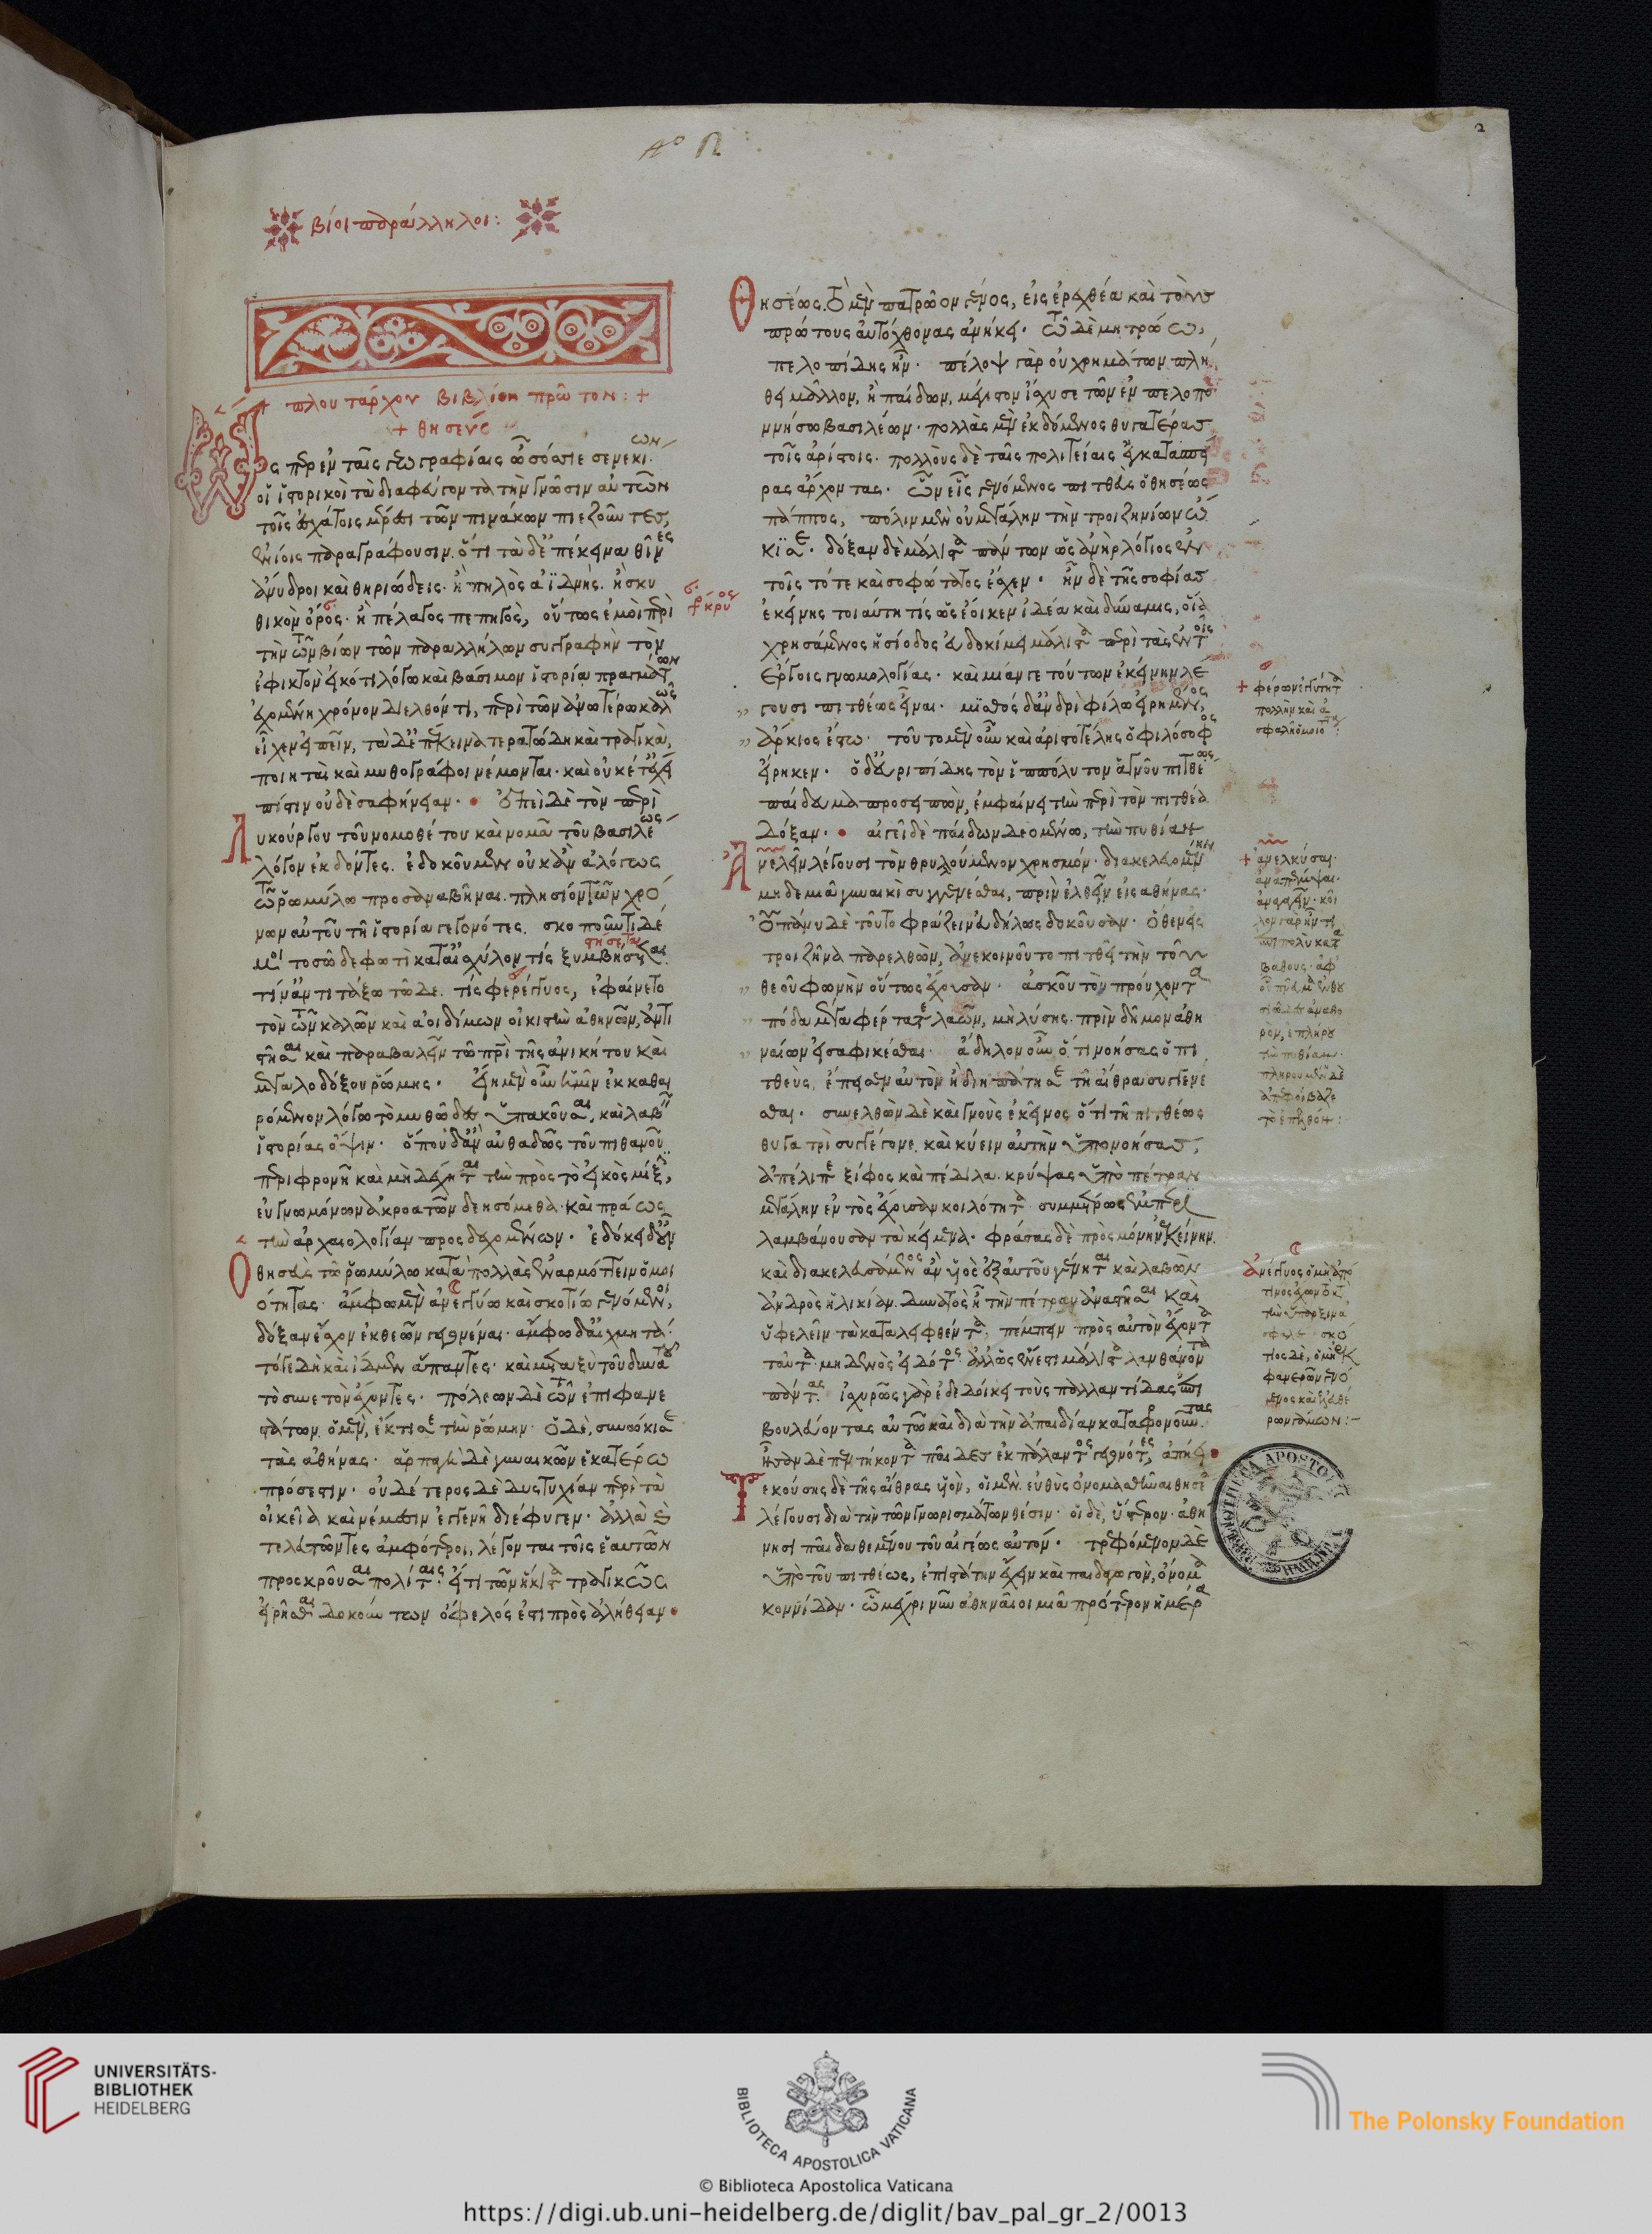 βίοι παράλληλοι:
πλουτάρχου βιβλίον πρῶτον: +
+ θησεύς
Ὥσπερ ἐν ταῖς γεωγραφίαις ὦ σόσσιε σενεκίων.
οἱ ἱστορικοὶ τὰ διαφεύγοντα τὴν γνῶσιν αὐτῶν
τοῖς ἐσχάτοις μέρεσι τῶν πινάκων πιεζοῦντες,
ἐνίοις παραγράφουσιν. ὅτι τὰ δ' ἐπέκεινα θῖνες
ἄνυδροι καὶ θηριώδεις. ἢ πηλὸς ἀϊδνής. ἢ σκυ
θικὸν ὄρος. ἢ πέλαγος πεπηγός, οὕτως ἐμοὶ περὶ
τὴν τῶν βίων τῶν παραλλήλων συγγραφὴν τὸν
ἐφικτὸν εἰκότι λόγω καὶ βάσιμον ἱστορία πραγμάτων
ἐχομένη χρόνον διελθόντι, περὶ τῶν ἀνωτέρω καλῶς
εἶχεν εἰπεῖν, τὰ δ' ἐπέκεινα τερατώδη καὶ τραγικὰ,
ποιηταὶ καὶ μυθογράφοι νέμονται. καὶ οὐκέτ' ἔχει
πίστιν οὐδὲ σαφήνειαν. ἐπεὶ δὲ τὸν περὶ
Λυκούργου τοῦ νομοθέτου καὶ νομᾶ τοῦ βασιλέως
λόγον ἐκδόντες. ἐδοκοῦμεν οὐκ ἂν ἀλόγως
τῶ ῥωμύλω προσαναβῆναι. πλησίον τῶν χρό
νων αὐτοῦ τῆ ἱστορία γεγονότες. σκοποῦντι δέ
μοι τοιῶδε φωτὶ κατ' αἰσχύλον τίς ξυμβήσεται
τίν' ἀντιτάξω τῶδε. τίς φερέγγυος, ἐφαίνετο
τὸν τῶν καλῶν καὶ ἀοιδίμων οἰκιστὴν ἀθηνῶν, ἀντι
στῆσαι καὶ παραβαλεῖν τῶ πατρὶ τῆς ἀνικήτου καὶ
μεγαλοδόξου ῥώμης. εἴη μὲν οὖν ἡμῖν ἐκκαθαι
ρόμενον λόγω τὸ μυθῶδες ὑπακοῦσαι, καὶ λαβεῖν
ἱστορίας ὄψιν. ὅπου δ' ἂν αὐθαδῶς τοῦ πιθανοῦ
περιφρονῆ καὶ μὴ δέχηται τὴν πρὸς τὸ εἰκὸς μίξιν,
εὐγνωμόνων ἀκροατῶν δεησόμεθα. καὶ πράως
τὴν ἀρχαιολογίαν προσδεχομένων. ἐδόκει δ' οὖν
Ὁ θησεὺς τῶ ῥωμύλω κατὰ πολλὰς ἐναρμόττειν ὁμοι
ότητας. ἄμφω μὲν ἀνεγγύω καὶ σκοτίω γενόμενοι,
δόξαν ἔσχον ἐκ θεῶν γεγονέναι. ἄμφω δ' αἰχμητὰ.
τόγε δὴ καὶ ἴδμεν ἅπαντες. καὶ μεταξὺ τοῦ δυνατοῦ
τὸ συνετὸν ἔχοντες. πόλεων δὲ τῶν ἐπιφανε
στάτων. ὁ μὲν, ἔκτισε τὴν ῥώμην. ὁ δὲ, συνώκισε
τὰς ἀθήνας. ἁρπαγὴ δὲ γυναικῶν ἑκατέρω
πρόσεστιν. οὐδέτερος δὲ δυστυχίαν περὶ τὰ
οἰκεῖα καὶ νέμεσιν ἐγγενῆ διέφυγεν. ἀλλὰ καὶ
τελευτῶντες ἀμφότεροι, λέγονται τοῖς ἑαυτῶν
προσκροῦσαι πολίταις. εἴ τι τῶν ἥκιστα τραγικῶς
εἰρῆσθαι δοκούντων ὄφελός ἐστι πρὸς ἀλήθειαν
Θησέως. τὸ μὲν πατρῶον γένος, εἰς ἐρεχθέα καὶ τοὺς
πρώτους αὐτόχθονας ἀνήκει. τῶ δὲ μητρώω,
πελοπίδης ἦν. πέλοψ γὰρ οὐ χρημάτων πλή
θει μᾶλλον, ἢ παίδων, μέγιστον ἴσχυσε τῶν ἐν πελοπο
ννήσω βασιλέων. πολλὰς μὲν ἐκδόμενος θυγατέρας
τοῖς ἀρίστοις. πολλοὺς δὲ ταῖς πολιτείαις ἐγκατασπεί
ρας ἄρχοντας. ὧν εἷς γενόμενος πιτθεὺς ὁ θησέως
πάππος, πόλιν μὲν οὐ μεγάλην τὴν τροιζηνίων ὤ
κισε. δόξαν δὲ μάλιστα πάντων ὡς ἀνὴρ λόγιος ἐν
τοῖς τότε καὶ σοφώτατος ἔσχεν. ἦν δὲ τῆς σοφίας
ἐκείνης τοιαύτη τίς ὡς ἔοικεν ἰδέα καὶ δύναμις, οἵα
χρησάμενος ἡσίοδος εὐδοκίμει μάλιστα περὶ τὰς ἐν τοῖς
ἔργοις γνωμολογίας. καὶ μίαν γε τούτων ἐκείνην λέ
γουσι πιτθέως εἶναι. μϊσθὸς δ' ἀνδρὶ φίλω εἰρημένος,
ἄρκιος ἔστω. τοῦτο μὲν οὖν καὶ ἀριστοτέλης ὁ φιλόσοφος
εἴρηκεν. ὁ δ' εὐριπίδης τὸν ἱππόλυτον ἁγνοῦ πιτθέως
παίδευμα προσειπὼν, ἐμφαίνει τὴν περὶ τὸν πιτθέα
δόξαν. αἰγεῖ δὲ παίδων δεομένω, τὴν πυθίαν
Ἀνελεῖν λέγουσι τὸν θρυλούμενον χρησμόν. διακελευομένην
μηδεμιᾶ γυναικὶ συγγενέσθαι, πρὶν ἐλθεῖν εἰς ἀθήνας.
οὐ πάνυ δὲ τοῦτο φράζειν εὐδήλως δοκοῦσαν. ὅθεν εἰς
τροιζῆνα παρελθὼν, ἀνεκοινοῦτο πιτθεῖ τὴν τοῦ
θεοῦ φωνὴν οὕτως ἔχουσαν. ἀσκοῦ τὸν προύχοντα
πόδα μέγα φέρτατε λαῶν, μὴ λύσης. πρὶν δῆμον ἀθη
ναίων εἰσαφικέσθαι. ἄδηλον οὖν ὅ τι νοήσας ὁ πι
τθεὺς, ἔπεισεν αὐτὸν ἢ διηπάτησε τῆ αἴθρα συγγενέ
σθαι. συνελθὼν δὲ καὶ γνοὺς ἐκεῖνος ὅτι τῆ πιτθέως
θυγατρὶ συγγέγονε. καὶ κύειν αὐτὴν ὑπονοήσας,
ἀπέλιπε ξίφος καὶ πέδιλα. κρύψας ὑπὸ πέτραν
μεγάλην ἐντὸς ἔχουσαν κοιλότητα συμμέτρως ἐμπερι
λαμβάνουσαν τὰ κείμενα. φράσας δὲ πρὸς μόνην ἐκείνην.
καὶ διακελευσάμενος ἂν υἱὸς ἐξ αὐτοῦ γένηται καὶ λαβὼν
ἀνδρὸς ἡλικίαν. δυνατὸς ἦ τὴν πέτραν ἀναστῆσαι καὶ
ὑφελεῖν τὰ καταλειφθέντα, πέμπειν πρὸς αὐτὸν ἔχοντα
ταῦτα. μηδενὸς εἰδότος. ἀλλ' ὡς ἔνεστι μάλιστα λανθάνοντα
πάντας. ἰσχυρῶς γὰρ ἐδεδοίκει τοὺς παλλαντίδας ἐπι
βουλεύοντας αὐτῶ καὶ διὰ τὴν ἀπαιδίαν καταφρονοῦντας.
ἦσαν δὲ πεντήκοντα παῖδες ἐκ πάλαντος γεγονότες, ἀπήει
Τεκούσης δὲ τῆς αἴθρας υἱὸν, οἱ μὲν. εὐθὺς ὀνομασθῆναι θησέα
λέγουσι διὰ τὴν τῶν γνωρισμάτων θέσιν. οἱ δὲ, ὕστερον. ἀθή
νησι παῖδα θεμένου τοῦ αἰγέως αὐτόν. τρεφόμενον δὲ
ὑπὸ τοῦ πιτθέως, ἐπιστάτην ἔχειν καὶ παιδαγωγὸν, ὄνομα
κοννίδαν. ὧ μέχρι νῦν ἀθηναῖοι μιᾶ πρότερον ἡμέρα
+ φέρων ἐγγύητα
πολλὴν καὶ ἀ
σφαλῆ ὁμοιότητα
2
UNIVERSITÄTS-
BIBLIOTHEK
HEIDELBERG
BIBLIOTECA APOSTOLICA VATICANA
The Polonsky Foundation
© Biblioteca Apostolica Vaticana
https://digi.ub.uni-heidelberg.de/diglit/bav_pal_gr_2/0013